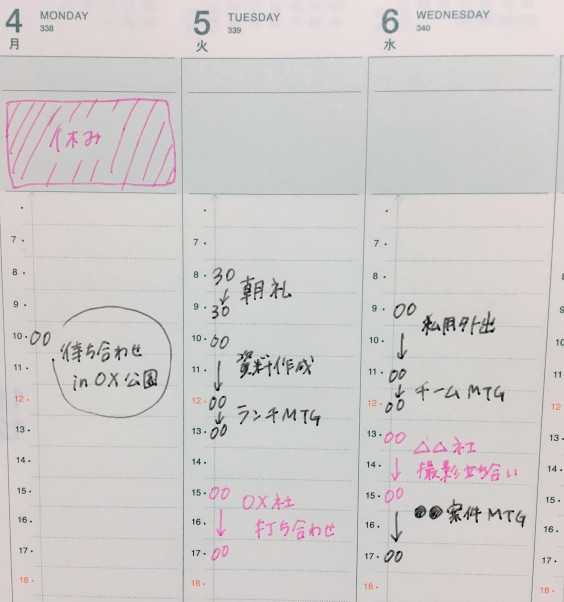 4 MONDAY
月 338
休み
7・
8・
9・
10・00
待ち合わせ
11・
in OX公園
12・
13・
14・
15・
16・
17・
18・
5 TUESDAY
火 339
7・
8・30
↓ 朝礼
9・30
10・00
↓ 資料作成
11・
12・00
↓ ランチMTG
13・00
14・
15・00
OX社
16・↓ 打ち合わせ
17・00
18・
6 WEDNESDAY
水 340
7・
8・
9・00
↓ 私用外出
10・
11・00
↓ チームMTG
12・00
13・00
△△社
14・↓ 撮影立ち合い
15・00
↓ ●●案件MTG
16・
17・00
18・
8
9
10
11
12
13
14
15
16
17
18